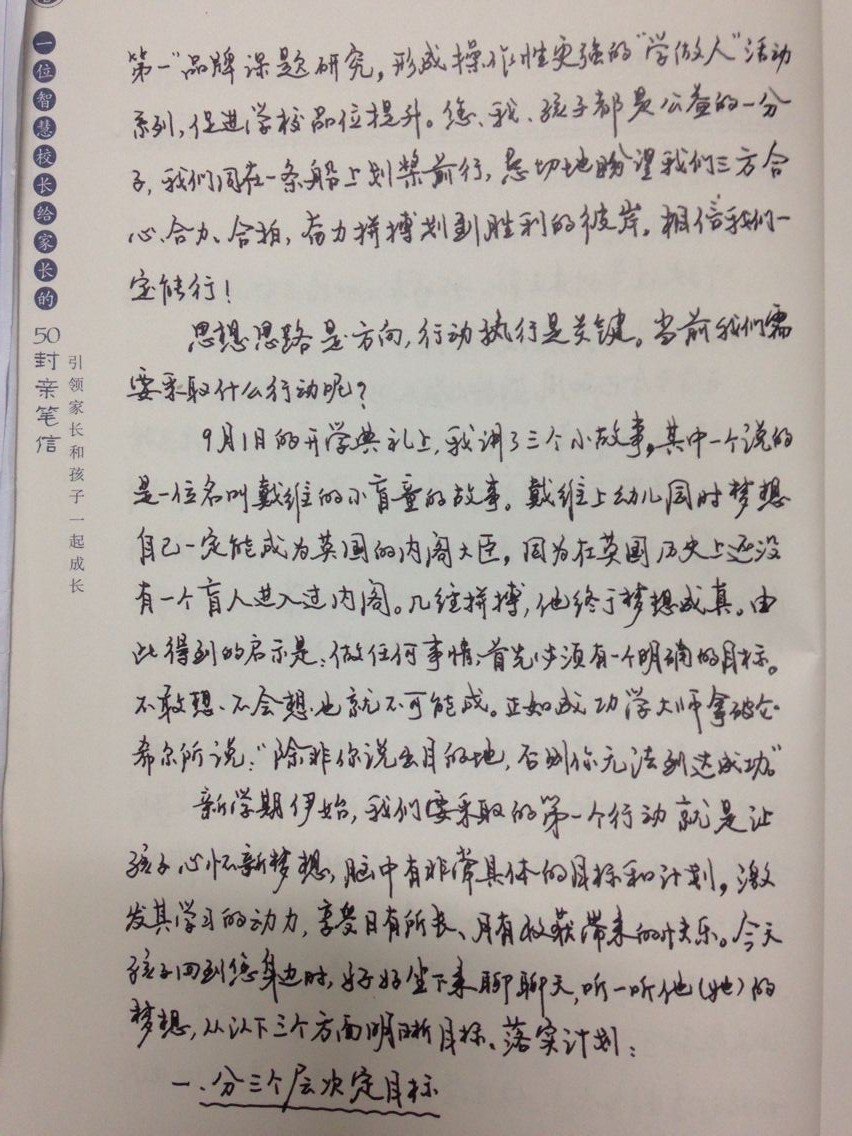 一位智慧校长给家长的
50封亲笔信
引领家长和孩子一起成长
第一”品牌课题研究，形成操作性更强的“学做人”活动
系列，促进学校品位提升。您、我、孩子都是公益的一分
子，我们同在一条船上划桨前行，恳切地盼望我们三方合
心、合力、合拍，奋力拼搏划到胜利的彼岸。相信我们一
定能行！
思想思路是方向，行动执行是关键。当前我们需
要采取什么行动呢？
9月1日的开学典礼上，我讲了三个小故事，其中一个说的
是一位名叫戴维的小盲童的故事。戴维上幼儿园时梦想
自己一定能成为英国的内阁大臣，因为在英国历史上还没
有一个盲人进入过内阁。几经拼搏，他终于梦想成真。由
此得到的启示是：做任何事情，首先必须有一个明确的目标。
不敢想、不会想，也就不可能成。正如成功学大师拿破仑·
希尔所说：“除非你说出目的地，否则你无法到达成功。”
新学期伊始，我们要采取的第一个行动就是让
孩子心怀新梦想，脑中有非常具体的目标和计划，激
发其学习的动力，享受日有所长、月有收获带来的快乐。今天
孩子回到您身边时，好好坐下来聊聊天，听一听他（她）的
梦想，从以下三个方面明晰目标、落实计划：
一、分三个层次定目标